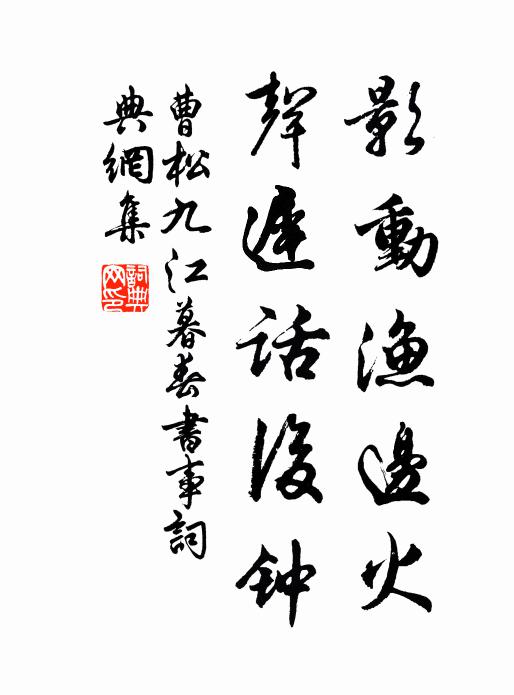 影動漁邊火
聲遲話後钟
曹松九江暮春書事詞
典網集
詞典網印